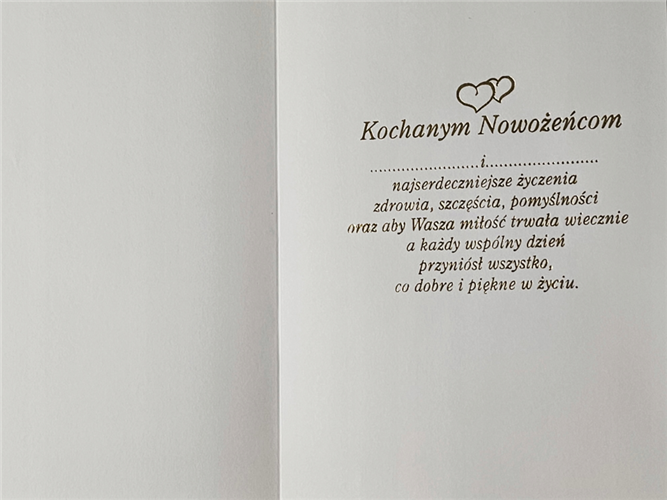 Kochanym Nowożeńcom
........................i........................
najserdeczniejsze życzenia
zdrowia, szczęścia, pomyślności
oraz aby Wasza miłość trwała wiecznie
a każdy wspólny dzień
przyniósł wszystko,
co dobre i piękne w życiu.